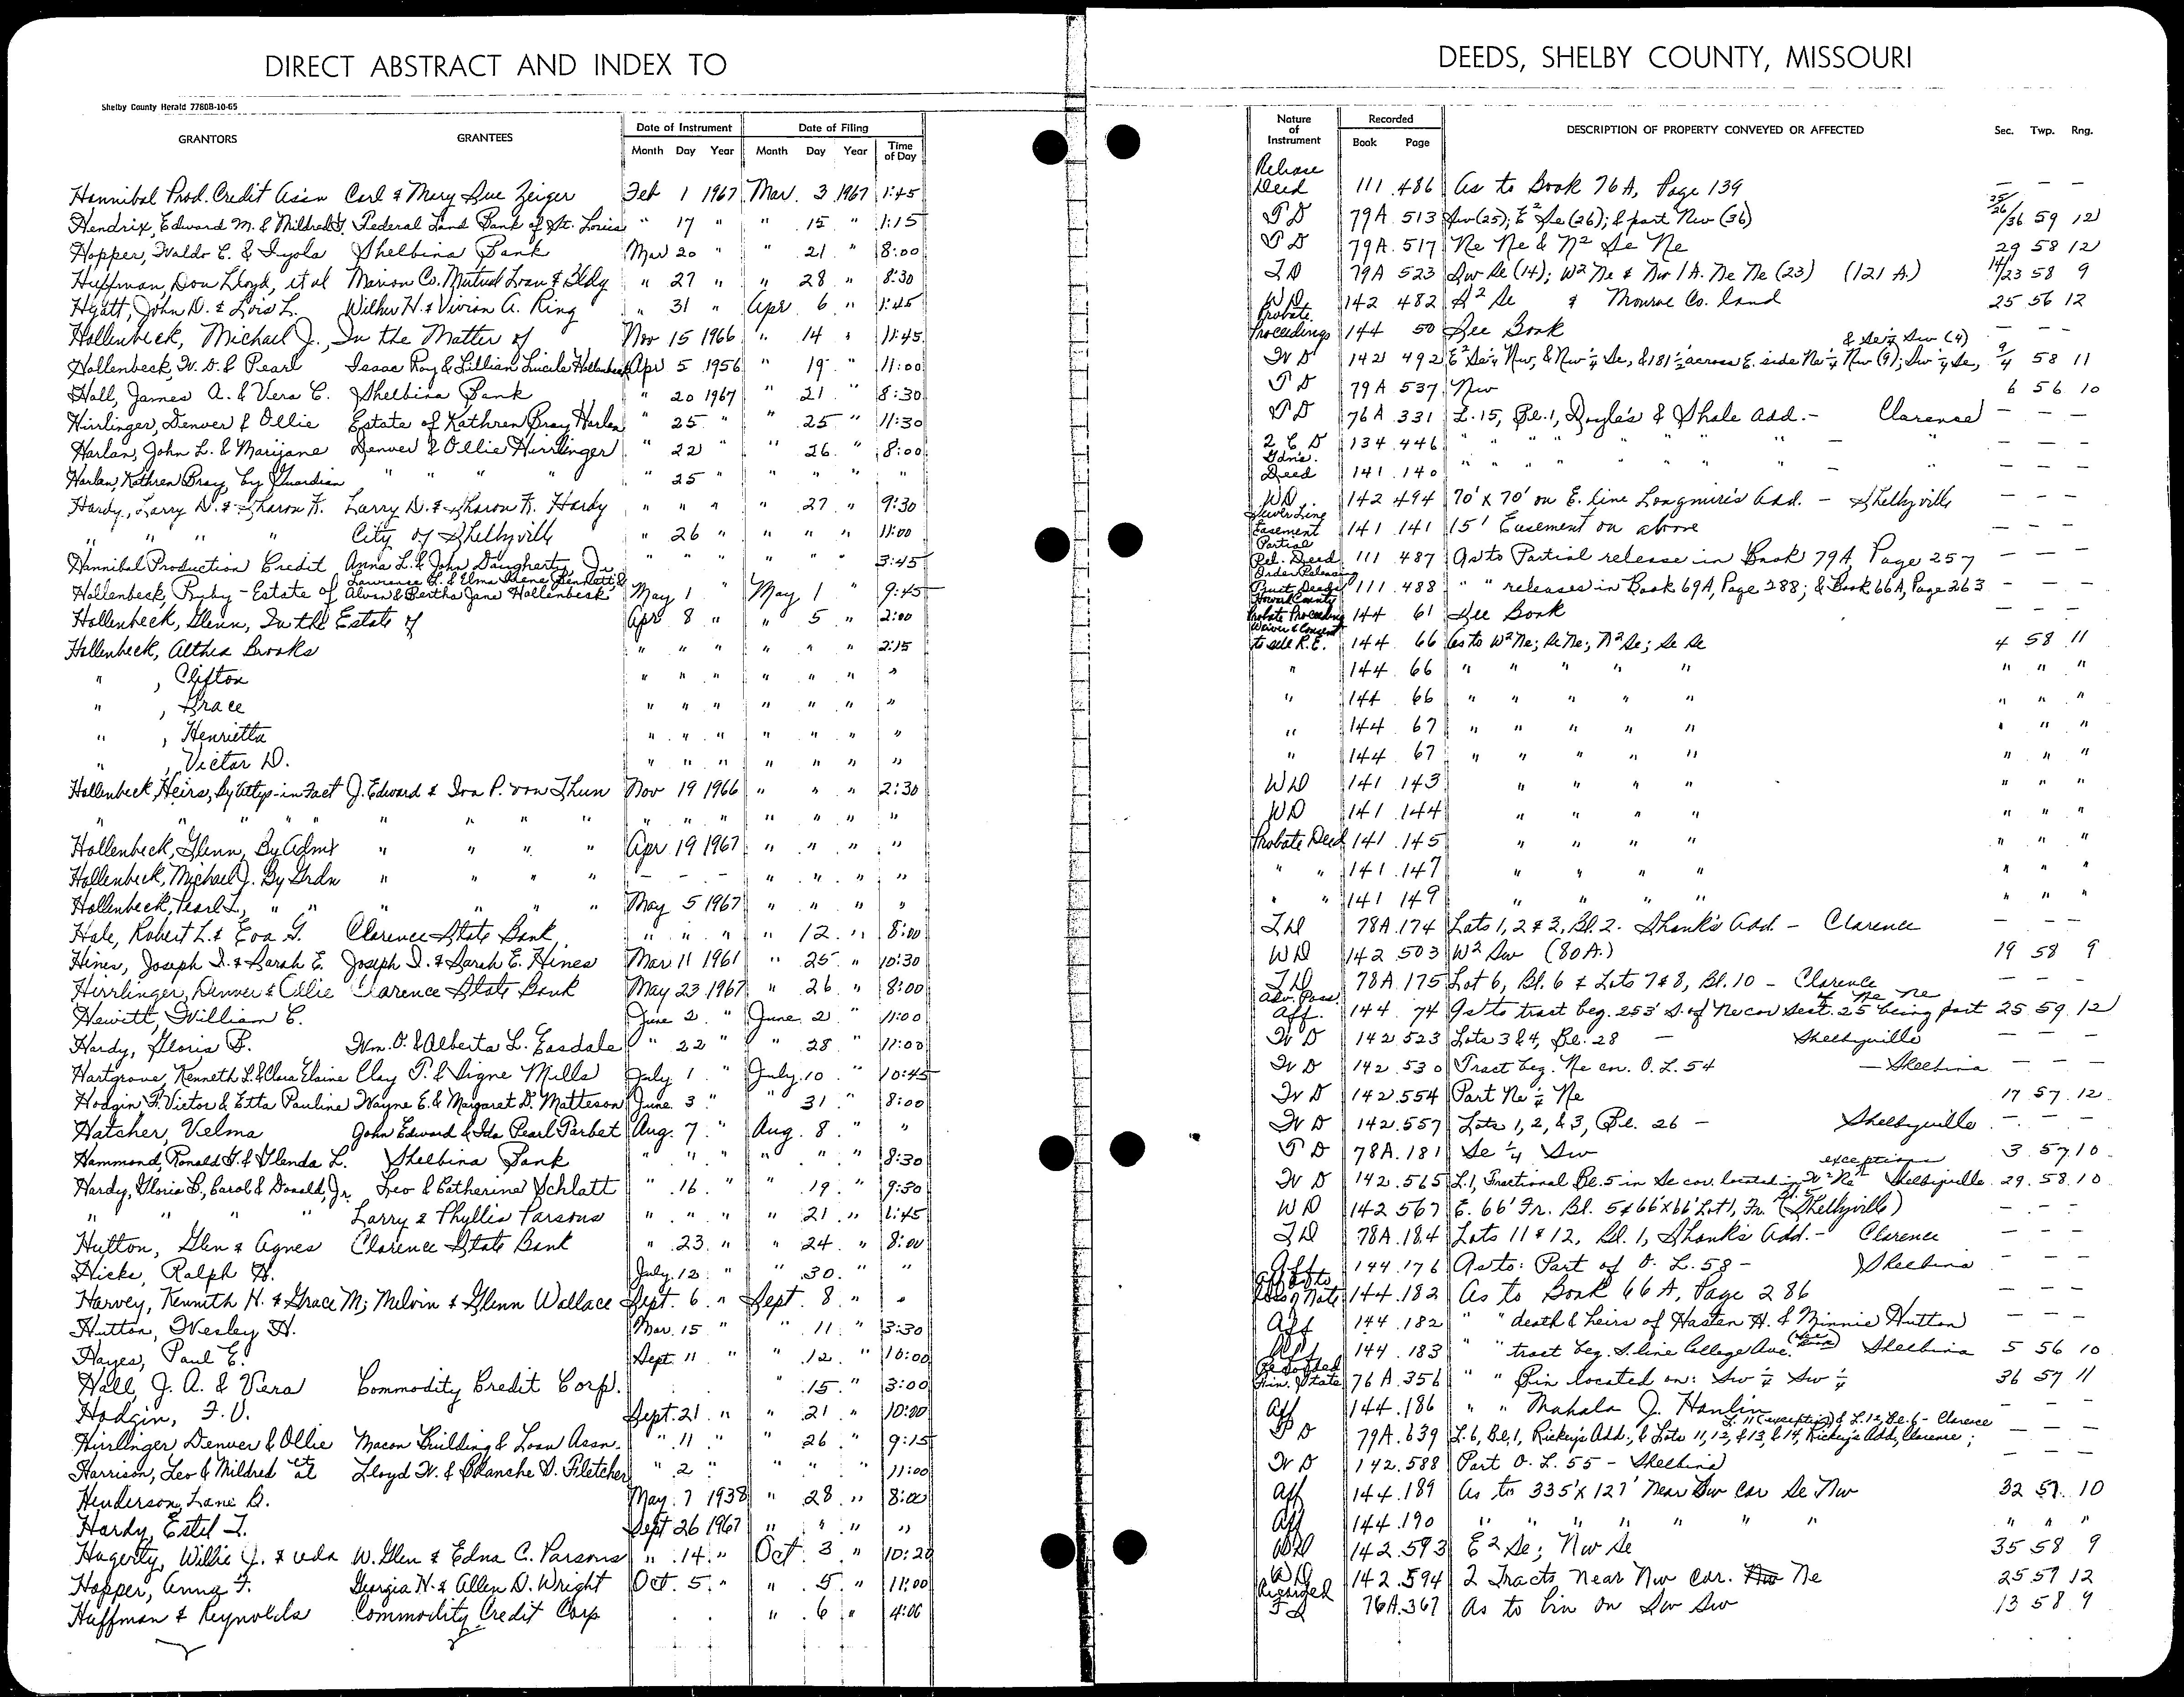 DIRECT ABSTRACT AND INDEX TO
DEEDS, SHELBY COUNTY, MISSOURI
Shelby County Herald 7780B-10-65
GRANTORS GRANTEES Date of Instrument Month Day Year Date of Filing Month Day Year Time of Day
Nature of Instrument Recorded Book Page DESCRIPTION OF PROPERTY CONVEYED OR AFFECTED Sec. Twp. Rng.
Hannibal Prod. Credit Ass'n Carl & Mary Sue Zeiger Feb 1 1967 Mar. 3 1967 1:45 Release Deed 111 486 As to Book 76A, Page 139 — — —
Hendrix, Edward M. & Mildred Federal Land Bank of St. Louis " 17 " " 15 " 1:15 T D 79A 513 Sw (25); E² Se (26); & part Nw (36) 25/26/36 59 12
Hopper, Waldo C. & Inyola Shelbina Bank Mar 20 " " 21 " 8:00 T D 79A 517 Ne Ne & N² Se Ne 29 58 12
Huffman, Don Lloyd, et al Marion Co. Mutual Loan & Bldg " 27 " " 28 " 8:30 T D 79A 523 Sw Se (14); W² Ne & Nw 1 A. Ne Ne (23) (121 A.) 14/23 58 9
Hyatt, John D. & Lois L. Wilbur H. & Vivian A. Ring " 31 " Apr 6 " 1:45 W D 142 482 S² Se & Monroe Co. land 25 56 12
Hollenbeck, Michael J., In the Matter of Nov 15 1966 " 14 " 11:45 Probate Proceedings 144 50 See Book — — —
Hollenbeck, W. D. & Pearl Isaac Roy & Lillian Lucile Hollenbeck Apr 5 1956 " 19 " 11:00 W D 142 492 E² Se¼ Nw, & Nw ¼ Se, & 181½' across E. side Ne ¼ Nw (9); Sw ¼ Se, & Se¼ Sw (4) 9/4 58 11
Hall, James A. & Vera C. Shelbina Bank " 20 1967 " 21 " 8:30 T D 79A 537 Nw 6 56 10
Hirrlinger, Denver & Ollie Estate of Kathren Bray Harlan " 25 " " 25 " 11:30 T D 76A 331 L. 15, Bl. 1, Doyle's & Shale Add. - Clarence — — —
Harlan, John L. & Marijane Denver & Ollie Hirrlinger " 22 " " 26 " 8:00 2 C D 134 446 " " " " " " — " — — —
Harlan, Kathren Bray, by Guardian " " " " 25 " " " " Gdn's. Deed 141 140 " " " " " " — " — — —
Hardy, Larry D. & Sharon K. Larry D. & Sharon K. Hardy " " " " 27 " 9:30 WD 142 494 70' x 70' on E. line Longmire's Add. - Shelbyville — — —
" " " " City of Shelbyville " 26 " " " " 11:00 Sewer Line Easement 141 141 15' Easement on above — — —
Hannibal Production Credit Anna L. & John Daugherty Jr. " " " " " " 3:45 Partial Rel. Deed 111 487 As to Partial release in Book 79A, Page 257 — — —
Hollenbeck, Ruby - Estate of Alvan & Bertha Jane Hollenbeck May 1 " May 1 " 9:45 Order Releasing Trust Deeds 111 488 " " releases in Book 69A, Page 288; & Book 66A, Page 263 — — —
Hollenbeck, Glenn, In the Estate of Apr 8 " " 5 " 2:00 Howard County Probate Proceeding 144 61 See Book — — —
Hollenbeck, Althea Brooks " " " " " " 2:15 Waiver & Consent to sell R.E. 144 66 As to W² Ne; Se Ne; N² Se; Se Se 4 58 11
" , Clifton " " " " " " " " 144 66 " " " " " " " "
" , Grace " " " " " " " " 144 66 " " " " " " " "
" , Henrietta " " " " " " " " 144 67 " " " " " " " "
" , Victor D. " " " " " " " " 144 67 " " " " " " " "
Hollenbeck Heirs, by Attys-in-Fact J. Edward & Iva P. von Thun Nov 19 1966 " " " 2:30 WD 141 143 " " " " " " "
" " " " " " " " " " " " " " " " WD 141 144 " " " " " " "
Hollenbeck, Glenn, By Admx " " " " Apr 19 1967 " " " " Probate Deed 141 145 " " " " " " "
Hollenbeck, Michael J. By Grdn " " " " - - - " " " " " " 141 147 " " " " " " "
Hollenbeck, Pearl I., " " " " " " May 5 1967 " " " " " " 141 149 " " " " " " "
Hale, Robert L. & Eva G. Clarence State Bank " " " " 12 " 8:00 T D 78A 174 Lots 1, 2 & 3, Bl. 2. Shank's Add. - Clarence — — —
Hines, Joseph I. & Sarah E. Joseph I. & Sarah E. Hines Mar 11 1961 " 25 " 10:30 WD 142 503 W² Sw (80A.) 19 58 9
Hirrlinger, Denver & Ollie Clarence State Bank May 23 1967 " 26 " 8:00 T D 78A 175 Lot 6, Bl. 6 & Lots 7 & 8, Bl. 10 - Clarence — — —
Hewitt, William C. June 2 " June 2 " 11:00 Adv. Poss. Aff. 144 74 As to tract beg. 253' S. of Ne cor Sect. 25 being part of Ne Ne 25 59 12
Hardy, Gloria B. Wm. O. & Alberta L. Easdale " 22 " " 28 " 11:00 W D 142 523 Lots 3 & 4, Bl. 28 — Shelbyville — — —
Hartgrove, Kenneth L. & Clara Elaine Clay T. & Signe Mills July 1 " July 10 " 10:45 W D 142 530 Tract beg. Ne cn. O. L. 54 — Shelbina — — —
Hodgin F. Victor & Etta Pauline Wayne E. & Margaret D. Matteson June 3 " " 31 " 8:00 W D 142 554 Part Ne ¼ Ne 17 57 12
Hatcher, Velma John Edward & Ida Pearl Tarbet Aug. 7 " Aug. 8 " " W D 142 557 Lots 1, 2, & 3, Bl. 26 — Shelbyville — — —
Hammond, Ronald G. & Glenda L. Shelbina Bank " " " " " " 8:30 T D 78A 181 Se ¼ Sw 3 57 10
Hardy, Gloria B., Carol & Donald, Jr. Leo & Catherine Schlatt " 16 " " 19 " 9:30 W D 142 565 L. 1, Fractional Bl. 5 in Se cor. located in W² Ne exceptions Shelbyville 29 58 10
" " " " Larry & Phyllis Parsons " " " " 21 " 1:45 WD 142 567 E. 66' Fr. Bl. 5 & 66'x66' Lot 1, Fr. Bl. 5 (Shelbyville) — — —
Hutton, Glen & Agnes Clarence State Bank " 23 " " 24 " 8:00 T D 78A 184 Lots 11 & 12, Bl. 1, Shank's Add. - Clarence — — —
Hicks, Ralph H. July 12 " " 30 " " Aff 144 176 As to: Part of O. L. 58 - Shelbina — — —
Harvey, Kenneth H. & Grace M; Melvin & Glenn Wallace Sept. 6 " Sept. 8 " " Aff as to Loss of Note 144 182 As to Book 66A, Page 286 — — —
Hutton, Wesley H. Mar. 15 " " 11 " 3:30 Aff 144 182 " " death & heirs of Hasten H. & Minnie Hutton — — —
Hayes, Paul E. Sept. 11 " " 12 " 10:00 Aff 144 183 " " tract beg. S. line College Ave. Shelbina 5 56 10
Hall, J. A. & Vera Commodity Credit Corp. " 15 " 3:00 Fin. State 76A 356 " " Bin located on: Sw ¼ Sw ¼ 36 57 11
Hodgin, F. V. Sept. 21 " " 21 " 10:00 Aff 144 186 " " Mahala J. Hanlin — — —
Hirrlinger Denver & Ollie Macon Building & Loan Assn. " 11 " " 26 " 9:15 T D 79A 639 L. 6, Bl. 1, Rickey's Add., & Lots 11, 12, & 13, & 14, Rickey's Add, Clarence; L. 11 (exception) & L. 12, Bl. 6 - Clarence — — —
Harrison, Leo & Mildred et al Lloyd W. & Blanche D. Fletcher " 2 " " " " 11:00 W D 142 588 Part O. L. 55 - Shelbina — — —
Henderson, Lane B. May 7 1938 " 28 " 8:00 Aff 144 189 As to 335' x 127' Near Sw cor Se Nw 32 57 10
Hardy, Estel T. Sept 26 1967 " " " " Aff 144 190 " " " " " " " " " "
Hagerty, Willie J. & Veda W. Glen & Edna C. Parsons " 14 " Oct. 3 " 10:20 WD 142 593 E² Se; Nw Se 35 58 9
Hopper, Anna F. Georgia H. & Allen D. Wright Oct. 5 " " 5 " 11:00 WD 142 594 2 Tracts Near Nw cor. Ne 25 57 12
Huffman & Reynolds Commodity Credit Corp " 6 " 4:00 76A 367 As to bin on Sw Sw 13 58 9